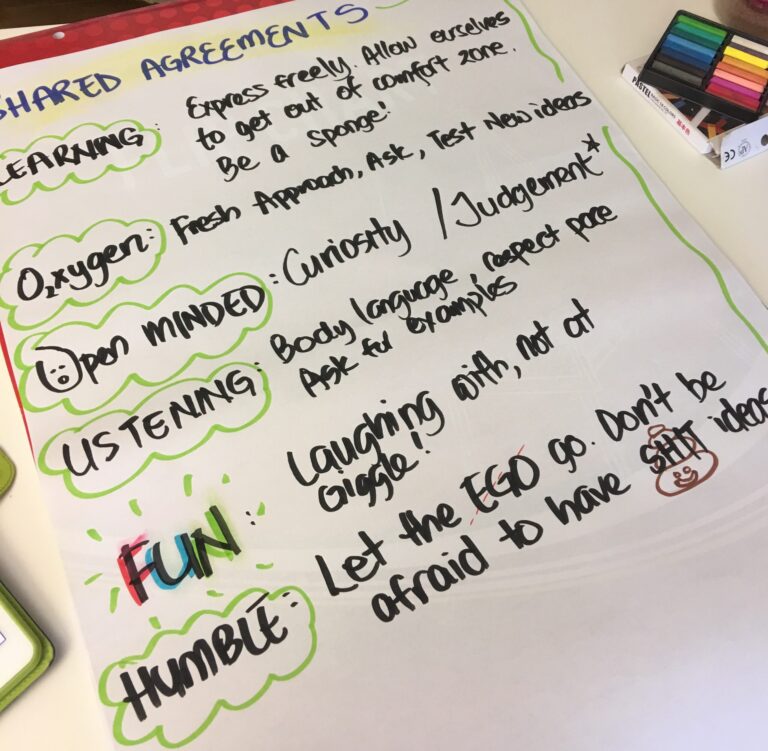 SHARED AGREEMENTS
LEARNING: Express freely. Allow ourselves
to get out of comfort zone.
Be a sponge!
O₂xygen: Fresh Approach, Ask, Test New ideas
Open MINDED: Curiosity / Judgement*
LISTENING: Body language, respect pace
Ask for examples
FUN: Laughing with, not at
Giggle!
HUMBLE: Let the EGO go. Don't be
afraid to have SHIT ideas
PASTEL
CE